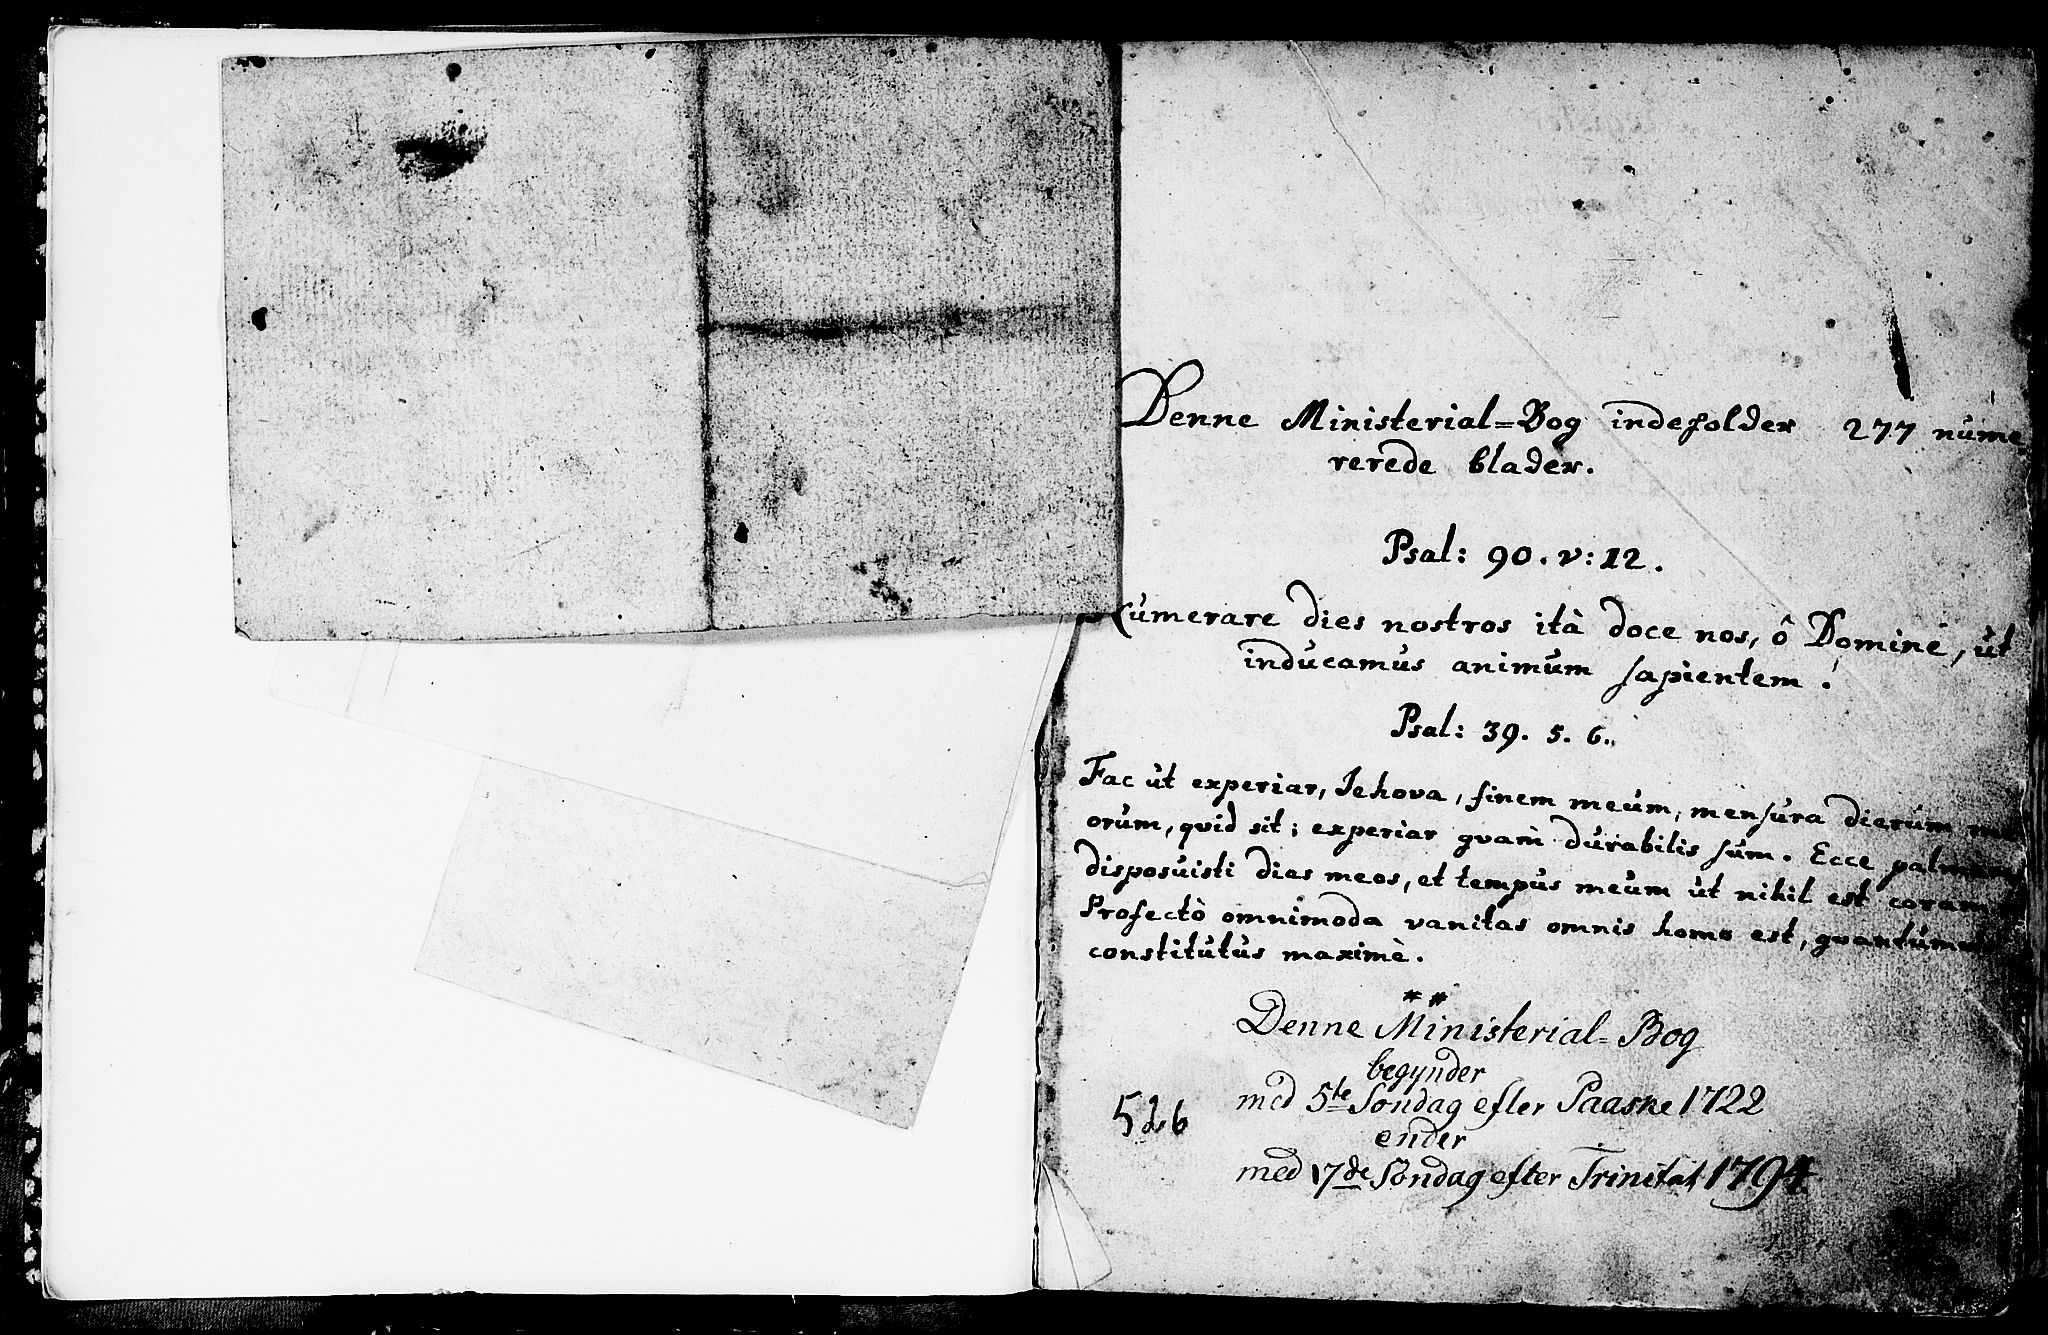 Denne Ministerial=Bog indeholder 277 nume
rerede blader.
Psal: 90. v: 12.
numerare dies nostros ità doce nos, ô Domine, ut
inducamus animum sapientem!
Psal: 39. 5. 6.
Fac ut experiar, Jehova, finem meum, mensura dierum me
orum, qvid sit; experiar qvam durabilis sum. Ecce palmares
disposuisti dies meos, et tempus meum ut nihil est coram
Profectò omnimoda vanitas omnis homo est, qvantumvis
constitutus maximè.
Denne Ministerial=Bog
begynder
med 5te Søndag efter Paaske 1722
526
ender
med 17de Søndag efter Trinitat 1794